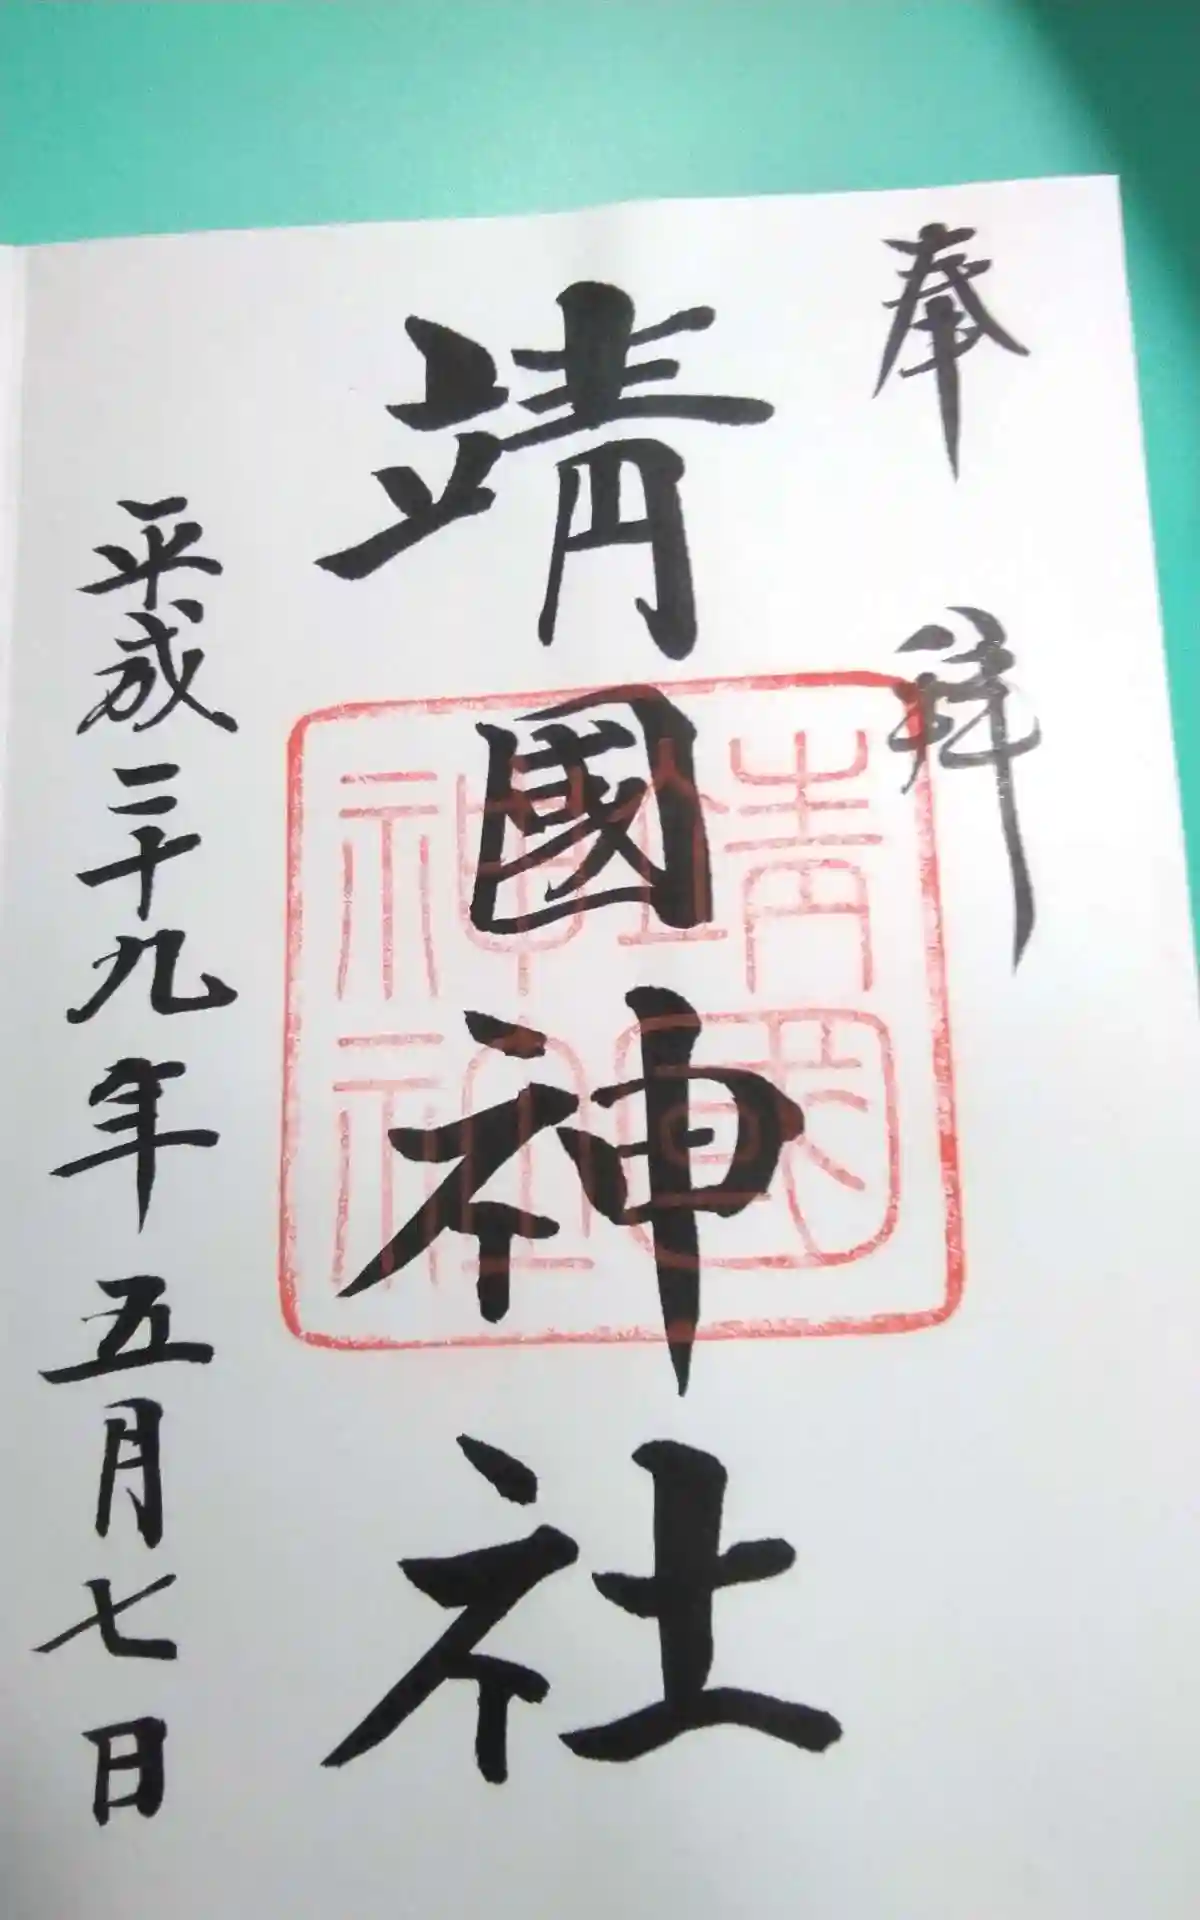 奉拜
靖國神社
靖國神社
平成二十九年五月七日